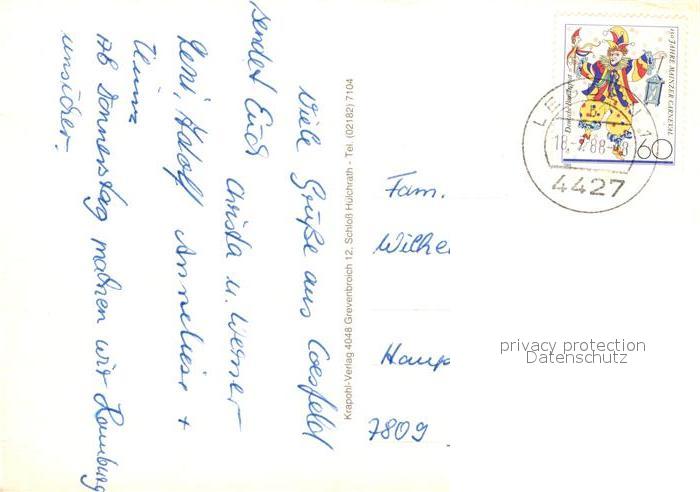 Viele Grüße aus Coesfeld
sendet Euch Christa u. Werner
Leni, Adolf Anneliese +
Heinz
Ab Donnerstag machen wir Hamburg
unsicher.
Krapohl-Verlag 4048 Grevenbroich 12, Schloß Hülchrath - Tel. (02182) 7104
150 JAHRE MAINZER CARNEVAL
Deutsche Bundespost
60
4427
Fam.
Wilhe
Haup
7809
privacy protection
Datenschutz